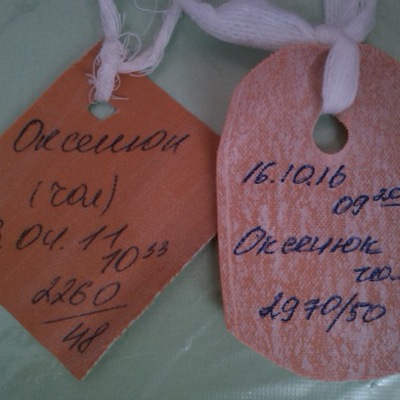 Оксенюк
(чол)
04.11
10 33
2260
48
16.10.16
09 20
Оксенюк
2970/50